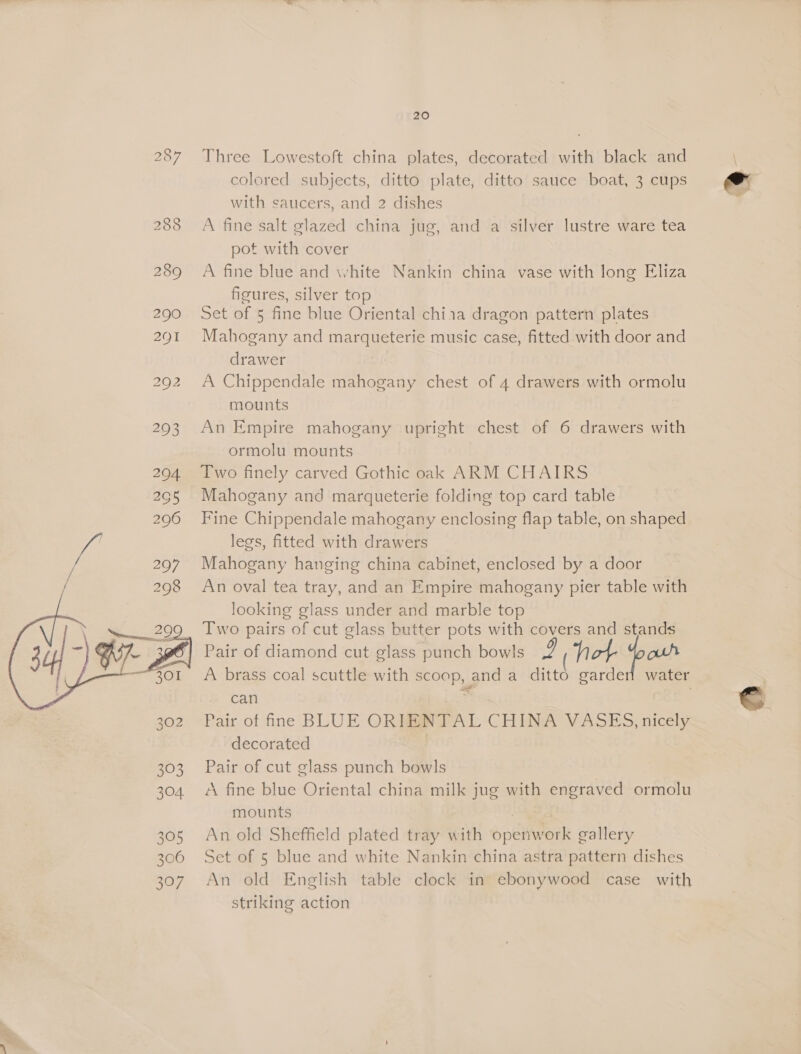 20
287 Three Lowestoft china plates, decorated with black and
colored subjects, ditto plate, ditto sauce boat, 3 cups
with saucers, and 2 dishes
288 A fine salt glazed china jug, and a silver lustre ware tea
pot with cover
289 A fine blue and white Nankin china vase with long Eliza
figures, silver top
290 Set of 5 fine blue Oriental china dragon pattern plates
291 Mahogany and marqueterie music case, fitted with door and
drawer
292 A Chippendale mahogany chest of 4 drawers with ormolu
mounts
293 An Empire mahogany upright chest of 6 drawers with
ormolu mounts
294 Two finely carved Gothic oak ARM CHAIRS
295 Mahogany and marqueterie folding top card table
296 Fine Chippendale mahogany enclosing flap table, on shaped
legs, fitted with drawers
297 Mahogany hanging china cabinet, enclosed by a door
298 An oval tea tray, and an Empire mahogany pier table with
looking glass under and marble top
299 Two pairs of cut glass butter pots with covers and stands
34/-) 300 Pair of diamond cut glass punch bowls 2, not pair
301 A brass coal scuttle with scoop, and a ditto garden water
can
302 Pair of fine BLUE ORIENTAL CHINA VASES, nicely
decorated
303 Pair of cut glass punch bowls
304 A fine blue Oriental china milk jug with engraved ormolu
mounts
305 An old Sheffield plated tray with openwork gallery
306 Set of 5 blue and white Nankin china astra pattern dishes
307 An old English table clock in ebonywood case with
striking action